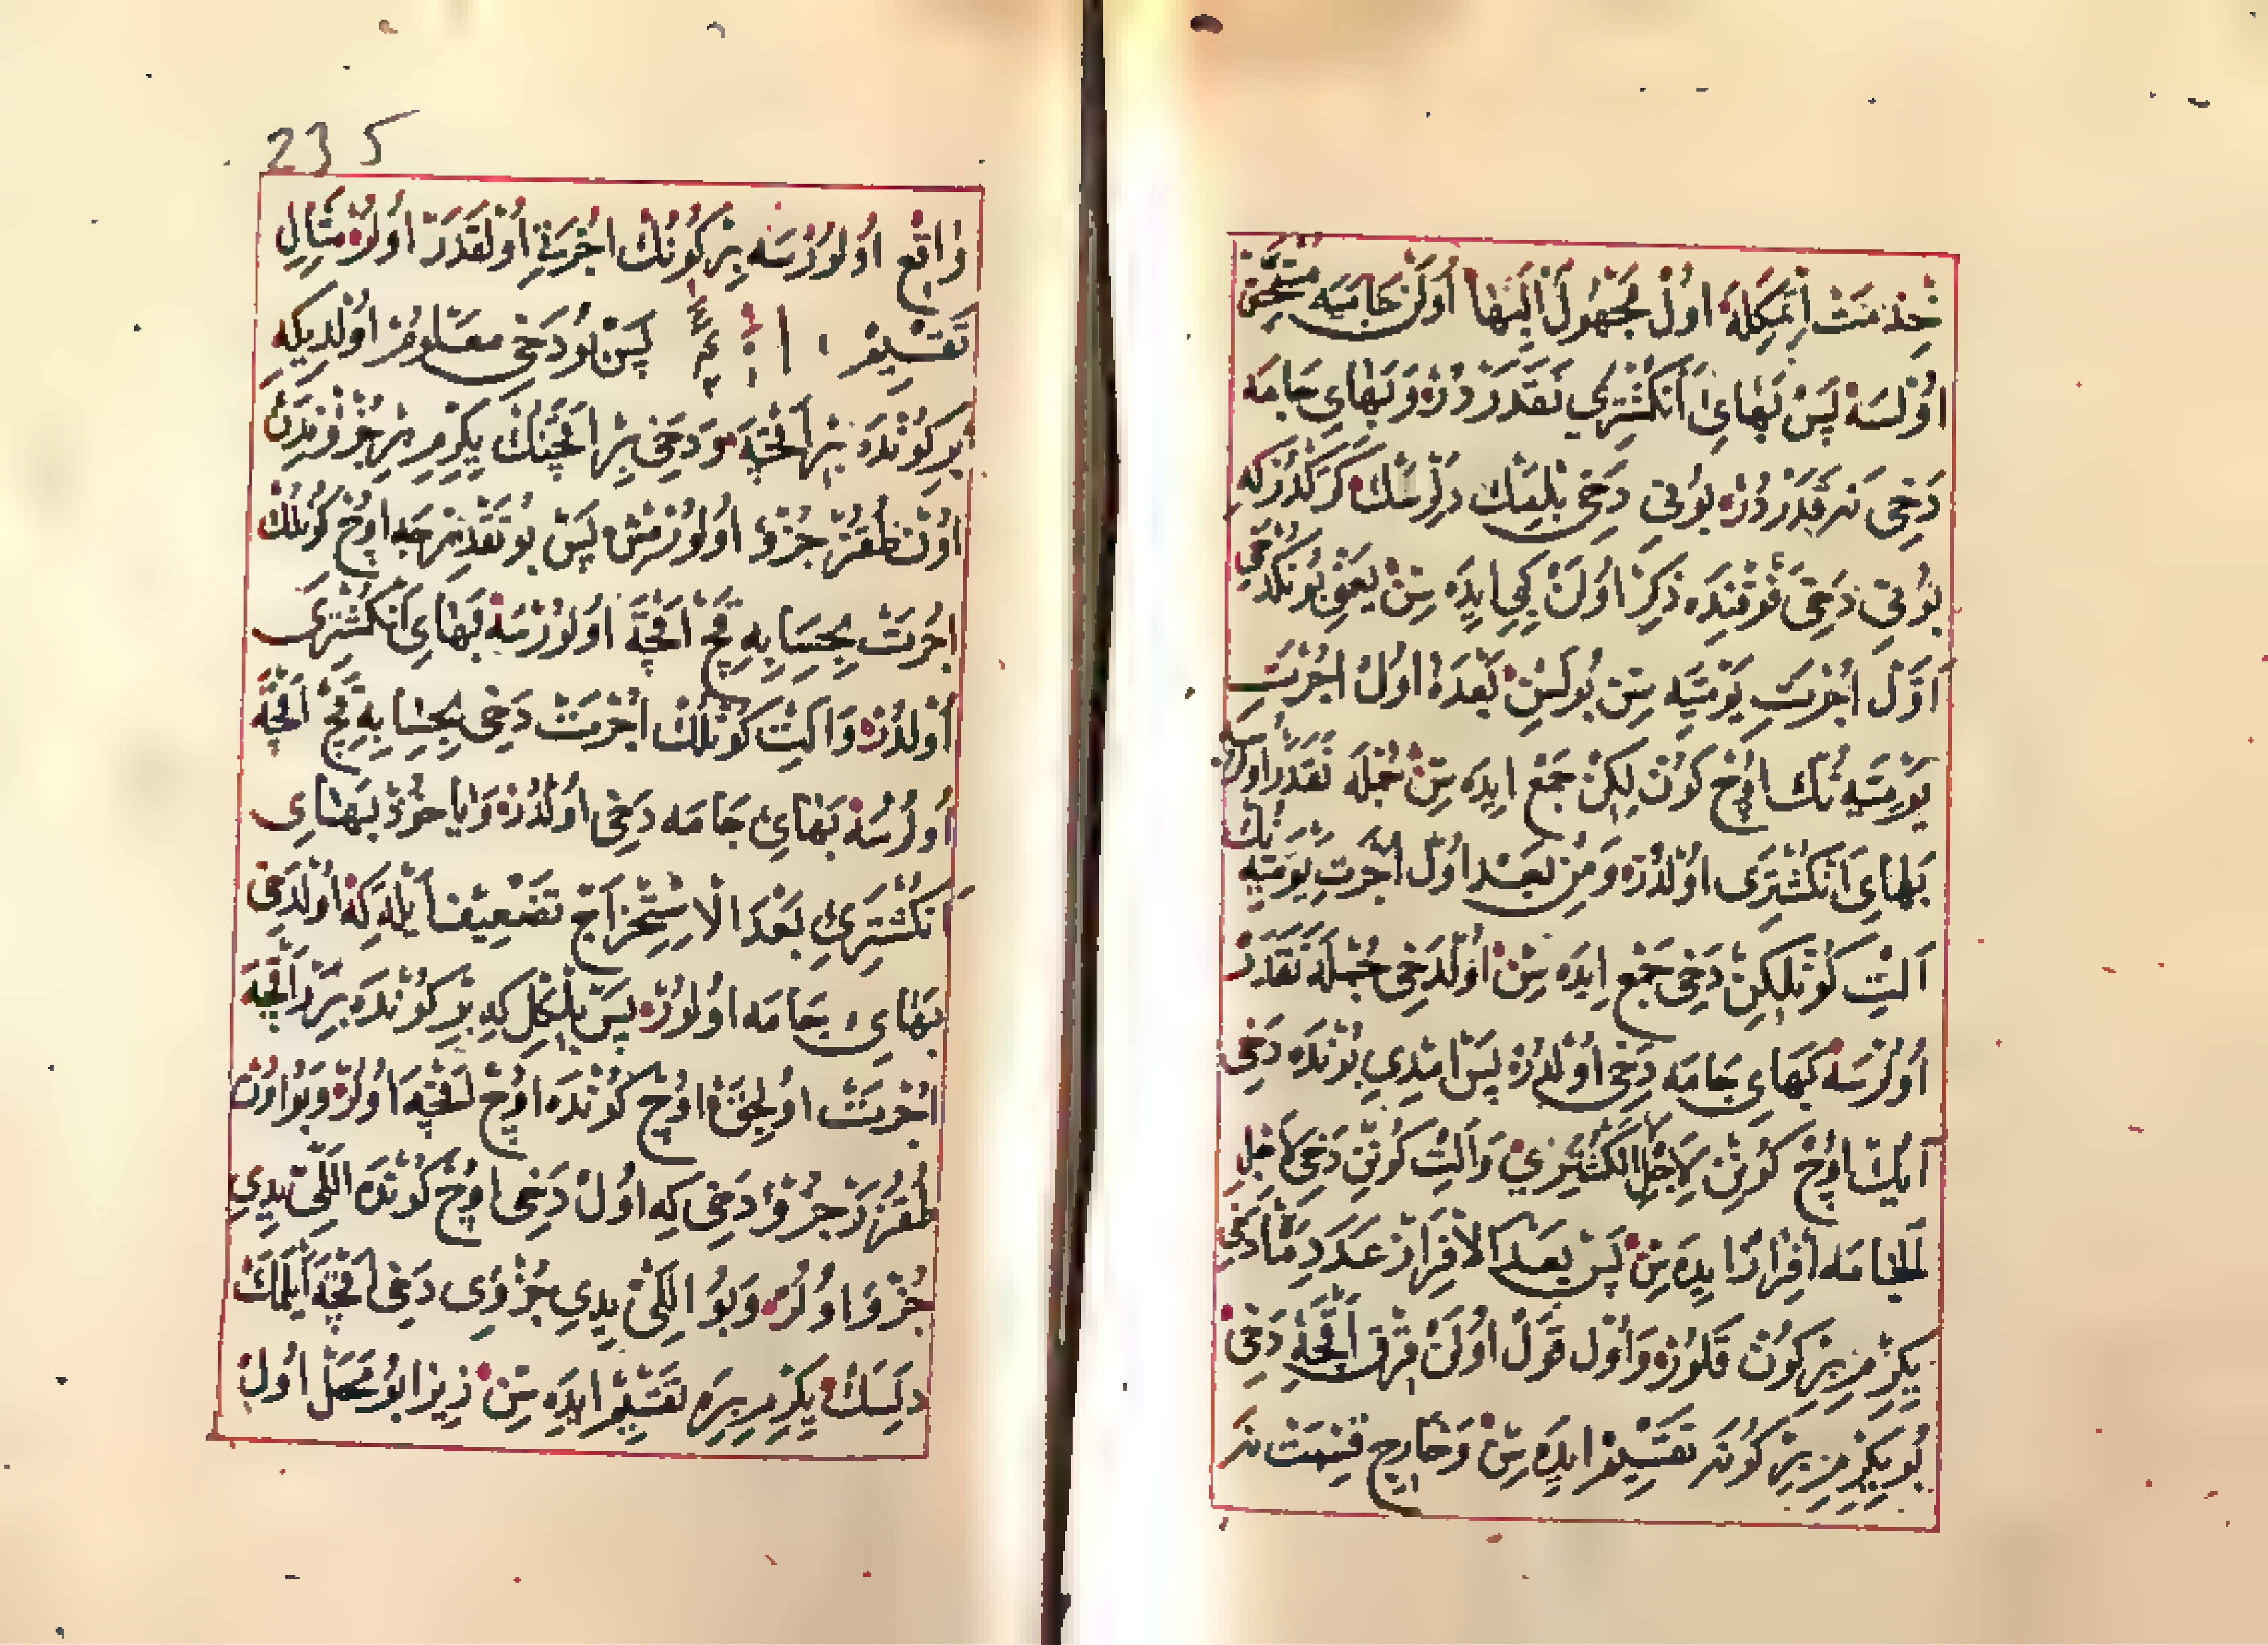 خِذْمَتْ اِتْمَكِلَهْ اُولْ مَجْهُولُ الْبَهَا اُولَنْ جَامَيَه مُسْتَحِقْ
اُوْلسَه پَسْ بَهَايِ اَنْكُشْتَرِي نَقَدَرْ دُرْ وَبَهَايِ جَامَه
دَخِى نَه قَدَرْ دُرْ بُونِى دَخِى بِلْمَكْ دِلَرْسَكْ كَرَكْدُرْكِه
بُونِى دَخِى فَوْقِنْدَه ذِكِرْ اُولَنْ كِبِى اِيدَه سِنْ يَعْنِى بُونْكْدَخِى
اَوَّلْ اُجْرَتِ يَوْمِيَّه سِنْ بُولَسِنْ بَعْدَهُ اُولْ اُجْرَتِ
يَوْمِيَّه نُكْ اُوچْ كُونْلِكِنْ جَمْعْ اِيدَه سِنْ جُمْلَه نَقَدَرْ اُولُرْسَه
بَهَايِ اَنْكُشْتَرِى اُوْلْدُرْ وَمِنْ بَعْد اُولْ اُجْرَتِ يَوْمِيَّه نُكْ
اَلْتِ كُونْلِكِنْ دَخِى جَمْعْ اِيدَه سِنْ اُولْدَخِى جُمْلَه نَقَدَرْ
اُولُرْسَه بَهَايِ جَامَه دَخِى اُوْلْدُرْ پَسْ اِمْدِي بُونْدَه دَخِى
اُوچْ كُونِنْ لِاَجْلِ الْكُشْتَرِي وَاَلْتِ كُونِنْ دَخِى لِاَجْلِ
الْجَامَه اِفْرَازْ اِيدَه سِنْ پَسْ بَعْدَ الْاِفْرَازْ عَدَدِ مَّا دَخِى
يِكِرْمِ بِرْ كُونْ قَلُورْ وَاَوَّلْ قَوْلْ اُولَنْ قِرْقْ اَقْچَه دَخِى
بُو يِكِرْمِ بِرْ كُونَه تَقْسِيمْ اِيدَه سِنْ وَخَارِجِ قِسْمَتْ نَه
235
وَاقِعْ اُولُورْسَه بِرْ كُونُكْ اُجْرَتِى اُولْقَدَرْ اُولُرْ مِثَالِ
تَقْسِيمْ پَسْ بُو دَخِى مَعْلُومْ اُولْدِيكِه
بِرْ كُونْدَه بِرْ اَقْچَه وَدَخِى بِرْ اَقْچَنِكْ يِكِرْمِ بِرْ جُزْوْنْدَنْ
اُونْ طُقُزْ جُزْوْ اُولُورْمِشْ پَسْ بُو تَقْدِيرْجَه اُوچْ كُونْلُكْ
اُجْرَتْ بِحِسَابِهِ قَچْ اَقْچَه اُولُورْسَه بَهَايِ اَنْكُشْتَرِى
اُولْدُرْ وَاَلْتِ كُونْلُكْ اُجْرَتْ دَخِى بِحِسَابِهِ قَچْ اَقْچَه
اُولُرْسَه بَهَايِ جَامَه دَخِى اُوْلْدُرْ وَيَاخُوذْ بَهَايِ
اَنْكُشْتَرِي بَعْدَ الْاِسْتِخْرَاجْ تَضْعِيفْ اَيْلَه كِه اُولْدَخِى
بَهَايِ جَامَه اُولُورْ پَسْ بِلْكِل كِه بِرْ كُونْدَه بِرَرْ اَقْچَه
اُجْرَتْ اُولِيجَقْ اُوچْ كُونْدَه اُوچْ اَقْچَه اُولُرْ وَبُو اُونْ
طُقُزَرْ جُزْوْ دَخِى كِه اُولْ دَخِى اُوچْ كُونْدَه اَللِّى يِدِي
جُزْوْ اُولُرْ وَبُو اَللِّى يِدِي جُزْوِى دَخِى اَقْچَه اَيْلَمَكْ
دِلَسَكْ يِكِرْمِ بِرَه تَقْسِيمْ اِيدَه سِنْ زِيرَا بُو مَحَلْ اُولْ